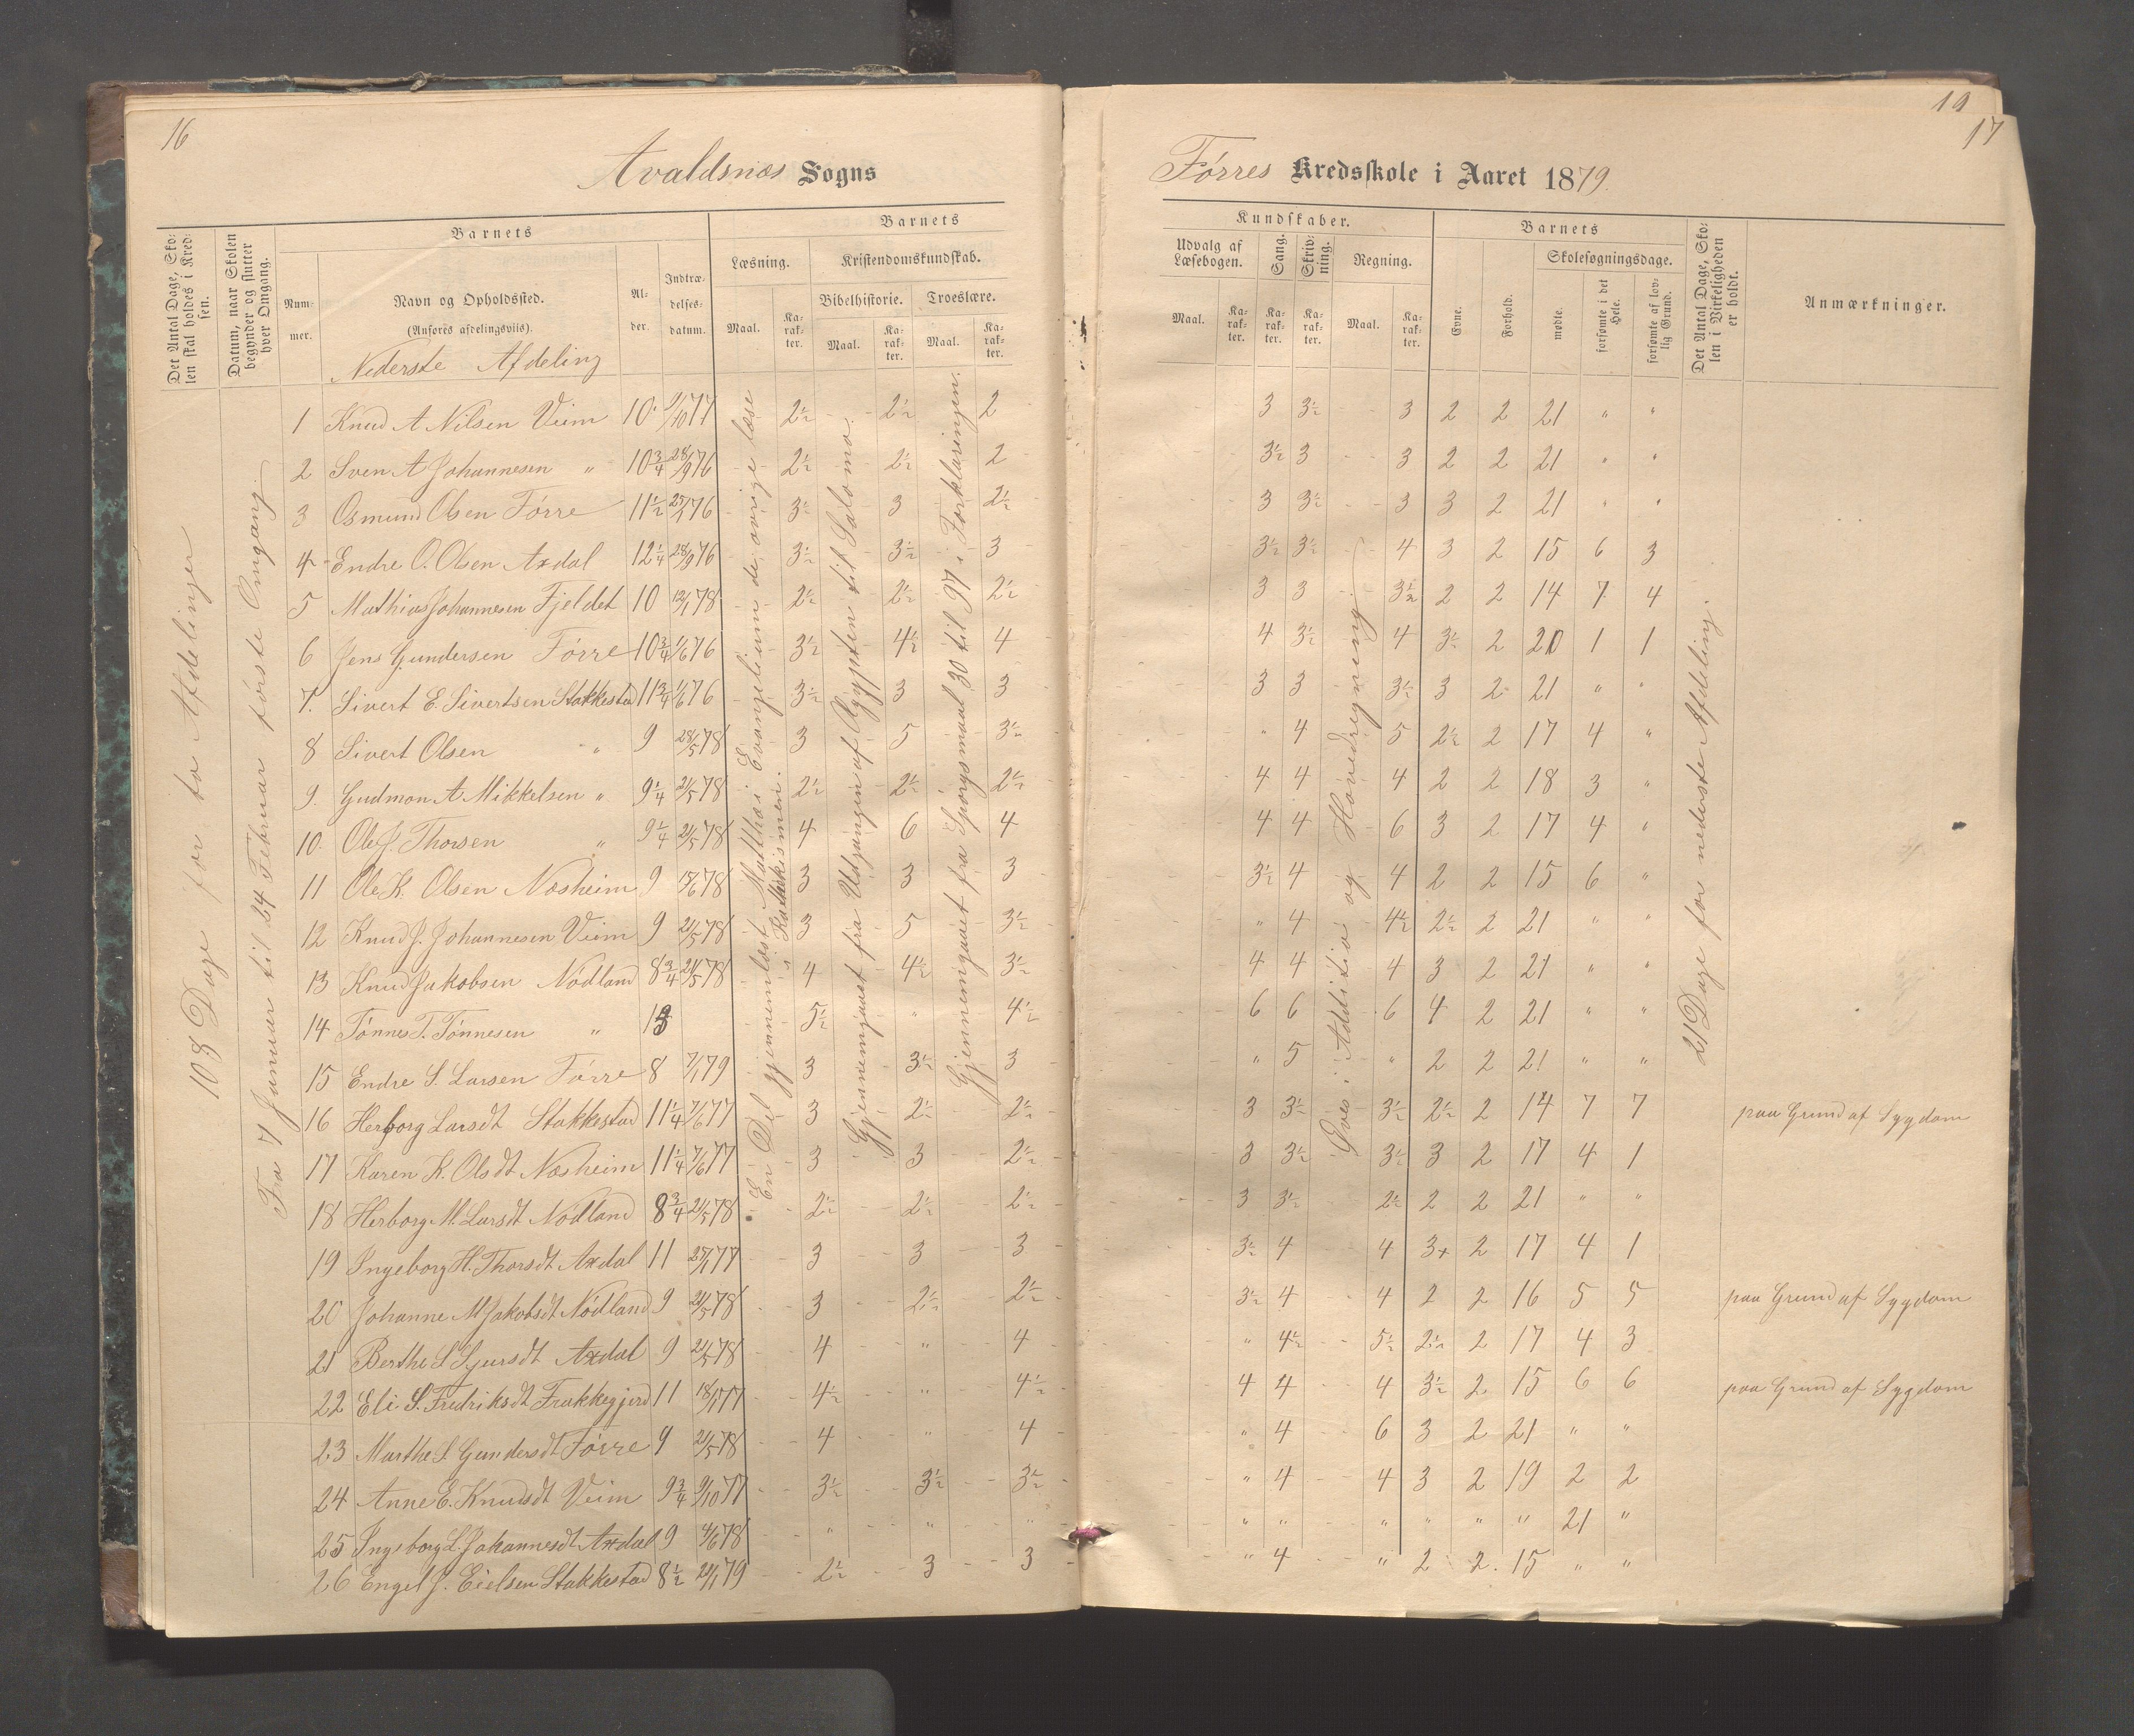 16
Avaldsnæs Sogns
Det Antal Dage, Skolen skal holdes i Kredsen.
Datum, naar Skolen begynder og slutter hver Omgang.
Barnets
Nummer.
Navn og Opholdssted.
(Anføres afdelingsviis).
Alder.
Indtrædelsesdatum.
Barnets
Læsning.
Kristendomskundskab.
Maal.
Karakter.
Bibelhistorie.
Troeslære.
Maal.
Karakter.
Maal.
Karakter.
Nederste Afdeling
108 Dage for to Afdelinger
Fra 7 Januar til 24 Februar første Omgang.
En Del gjennemlæst Matthæi Evangelium de øvrige læse i Katekismen.
Gjennemgaaet fra Udgangen af Ægypten til Salomo.
Gjennemgaaet fra Spörgsmaal 30 til 97 i Forklaringen.
1 Knud A Nilsen Veim 10 9/10 77 2½ 2½ 2
2 Sven A Johannesen " 10¾ 28/9 76 2½ 2½ 2
3 Osmund Olsen Førre 11½ 27/1 76 3½ 3 2½
4 Endre O. Olsen Axdal 12¼ 28/9 76 3½ 3½ 3
5 Mathias Johannesen Fjeldet 10 12/1 78 2½ 2½ 2½
6 Jens Gundersen Førre 10¾ 1/6 76 3½ 4½ 4
7. Sivert E. Sivertsen Stakkestad 11¾ 1/6 76 3½ 3 3
8 Sivert Olsen " 9 28/5 78 3 5 3½
9. Gudmon A Mikkelsen " 9¼ 21/5 78 2½ 2½ 2½
10. Ole J. Thorsen " 9¼ 21/5 78 4 6 4
11 Ole K. Olsen Næsheim 9 78 3 3 3
12 Knud J. Johannesen Veim 9 21/5 78 3 5 3½
13 Knud Jakobsen Nødland 8¾ 21/5 78 4 4½ 3½
14 Tønnes T. Tønnesen " 5½ " 4½
15 Endre S. Larsen Førre 8 7/1 79 3 3½ 3
16 Herborg Larsdt Stakkestad 11¼ 7/6 77 3 2½ 2½
17 Karen K. Olsdt Næsheim 11¼ 7/6 77 3 3 2½
18 Herborg M. Larsdt Nødland 8¾ 21/5 78 2½ 2½ 2½
19 Ingeborg H. Thorsdt Axdal 11 27/1 77 3 3 3
20 Johanne M Jakobsdt Nødland 9 21/5 78 3 2½ 2½
21 Berthe S Sjursdt Axdal 9 21/5 78 4 " 4
22 Eli S. Fredriksdt Frakkegjerd 11 18/1 77 4½ " 4½
23 Marthe S. Gundersdt Førre 9 21/5 78 4 " 4
24 Anne E. Knudsdt Veim 9¾ 9/10 77 3½ 3½ 3½
25 Ingeborg L. Johannesdt Axdal 9 4/6 78 " " "
26 Engel J. Eielsen Stakkestad 8½ 21/1 79 2½ 3 3
19
17
Førres Kredsskole i Aaret 1879
Kundskaber.
Udvalg af Læsebogen.
Sang.
Skrivning.
Regning.
Maal.
Karakter.
Karakter.
Karakter.
Maal.
Karakter.
Barnets
Evne.
Forhold.
Skolesøgningsdage.
mødte.
forsømte i det Hele.
forsømte af lovlig Grund.
Det Antal Dage, Skolen i Virkeligheden er holdt.
Anmærkninger.
Øves i Addition og Hovedregning.
21 Dage for nederste Afdeling.
3 3½ 3 2 2 21 " "
3½ 3 3 2 2 21 " "
3 3½ 3 3 2 21 " "
3½ 3½ 4 3 2 15 6 3
3 3 3½ 2 2 14 7 4
4 3½ 4 3½ 2 20 1 1
3 3 3½ 3 2 21 " "
" 4 5 2½ 2 17 4 "
4 4 4 2 2 18 3 "
4 4 6 3 2 17 4 "
3½ 4 4 2 2 15 6 "
" 4 4½ 2½ 2 21 " "
4 4 4 3 2 21 " "
6 6 6 4 2 21 " "
" 5 " 2 2 21 " "
3 3½ 3½ 2½ 2 14 7 7 paa Grund af Sygdom
3 3½ 3½ 3 2 17 4 1
3 3½ 2½ 2 2 21 " "
3½ 4 4 3+ 2 17 4 1
3½ 4 4 2 2 16 5 5 paa Grund af Sygdom
" 4½ 5½ 2½ 2 17 4 3
4 4 4 3½ 2 15 6 6 paa Grund af Sygdom
" 4 6 3 2 21 " "
" 4 4 3 2 19 2 2
" " " " " " 21 "
" 4 " 2 2 15 " "